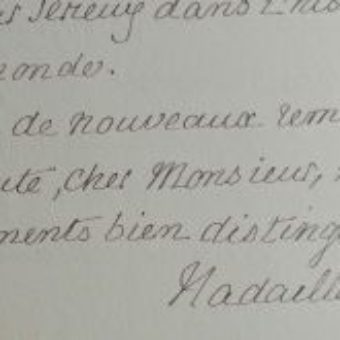 dans l'his
monde.
de nouveaux rem
uté, cher Monsieur,
ments bien disting
Nadaill